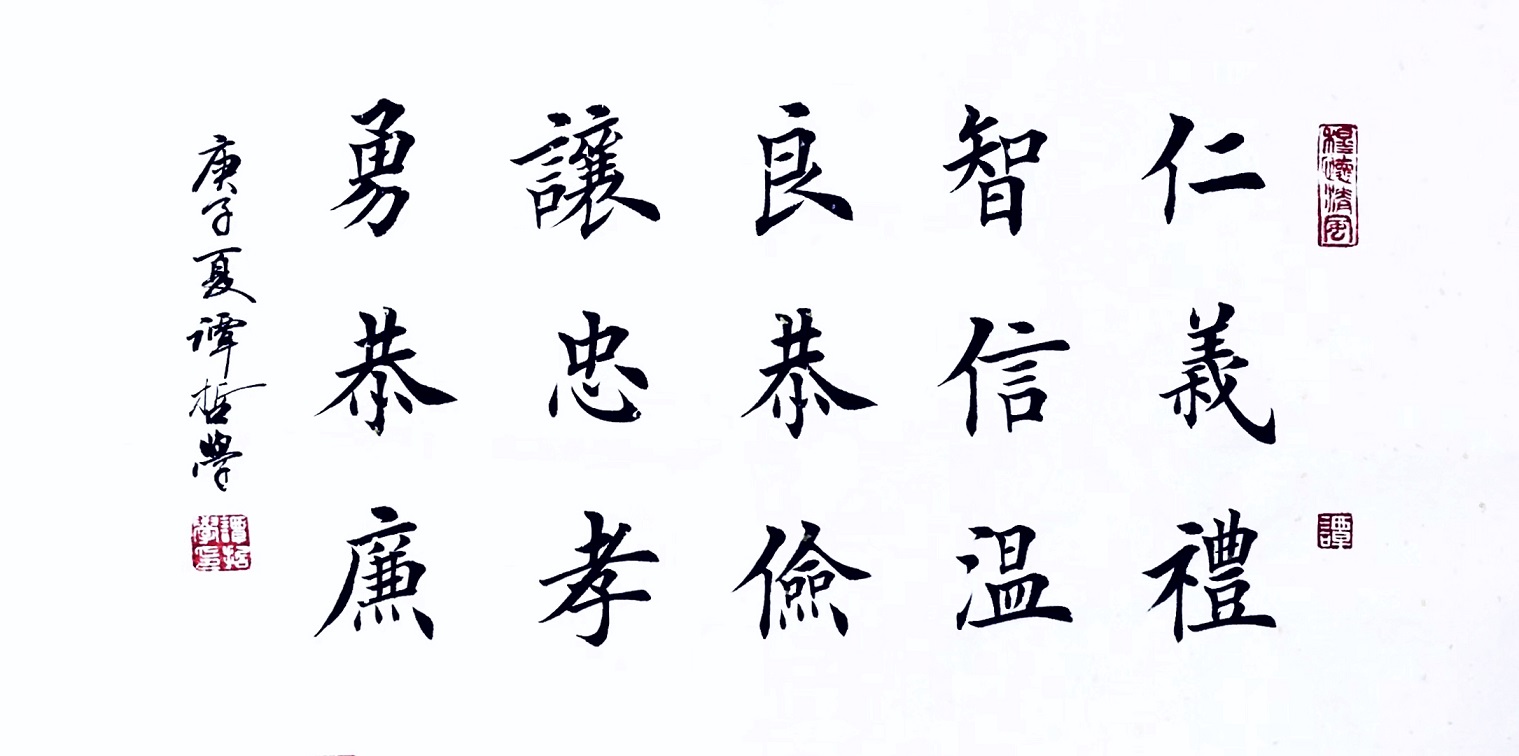 仁義禮
智信温
良恭儉
讓忠孝
勇恭廉
庚子夏谭哲學
穆遠清風
譚